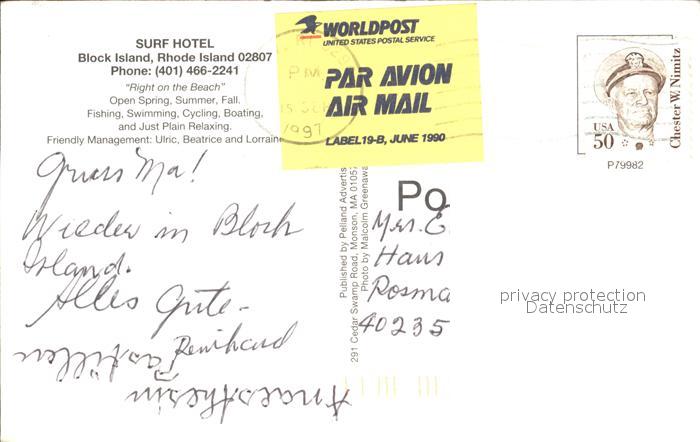 SURF HOTEL
Block Island, Rhode Island 02807
Phone: (401) 466-2241
"Right on the Beach"
Open Spring, Summer, Fall.
Fishing, Swimming, Cycling, Boating,
and Just Plain Relaxing.
Friendly Management: Ulric, Beatrice and Lorraine
WORLDPOST
UNITED STATES POSTAL SERVICE
PAR AVION
AIR MAIL
LABEL 19-B, JUNE 1990
PM
1997
USA
50
Chester W. Nimitz
P79982
Gruss Ma!
Wieder in Block
Island.
Alles Gute -
Reinhard
Anaesthesin
Pastillen
Published by Pelland Advertis
291 Cedar Swamp Road, Monson, MA 01057
Photo by Malcolm Greenaway
Po
Mrs. E
Haus
Rosma
40235
privacy protection
Datenschutz